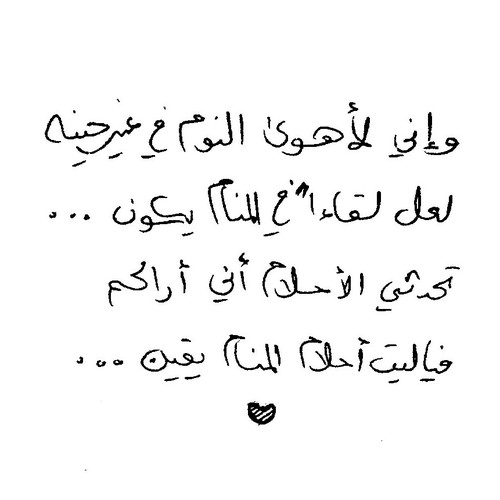 وإني لأهوى النوم في غير حينه
لعل لقاءاً في المنام يكون ...
تحدثني الأحلام أني أراكم
فياليت أحلام المنام يقين ...